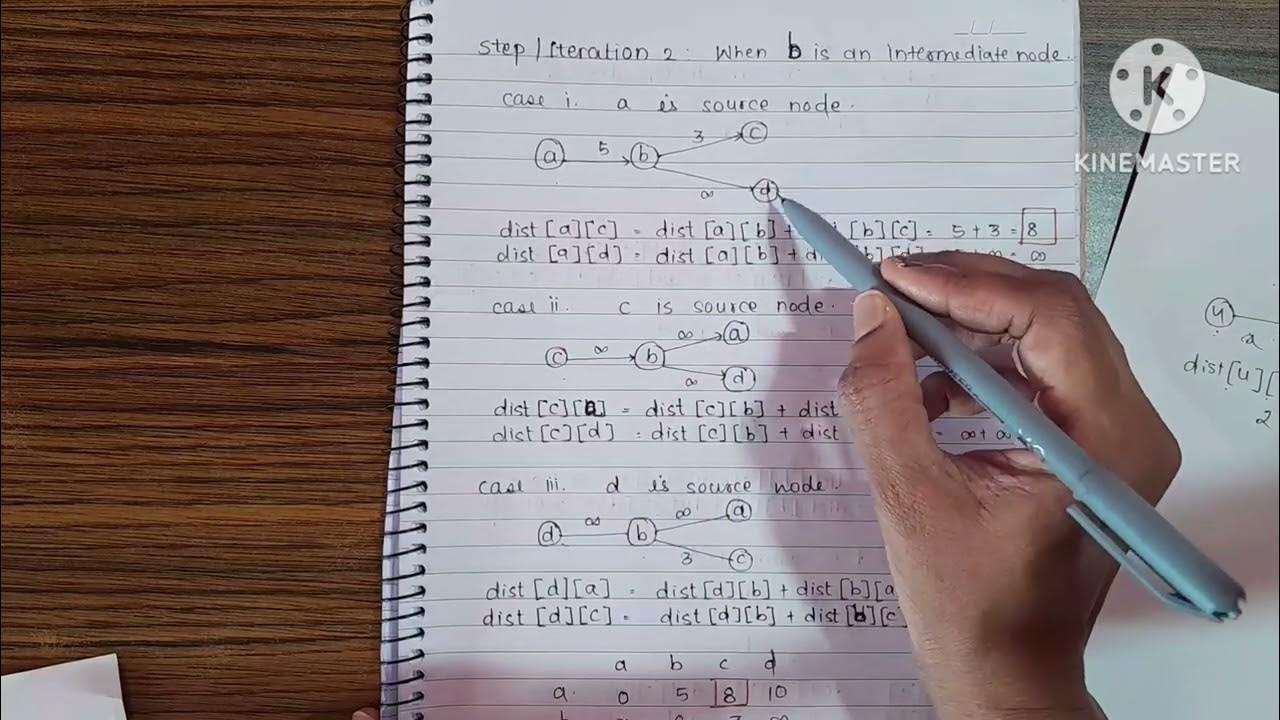 Step/Iteration 2: When b is an intermediate node.
case i. a is source node.
a 5 b 3 c
∞ d
dist [a][c] = dist [a][b] + [b][c] = 5 + 3 = 8
dist [a][d] = dist [a][b] + [b][d] ∞ = ∞
case ii. c is source node.
c ∞ b ∞ a
∞ d
dist [c][a] = dist [c][b] + dist
dist [c][d] = dist [c][b] + dist = ∞ + ∞
case iii. d is source node.
d ∞ b ∞ a
3 c
dist [d][a] = dist [d][b] + dist [b][a
dist [d][c] = dist [d][b] + dist [b][c
a b c d
a 0 5 8 10
KINEMASTER
4
dist [4][
2